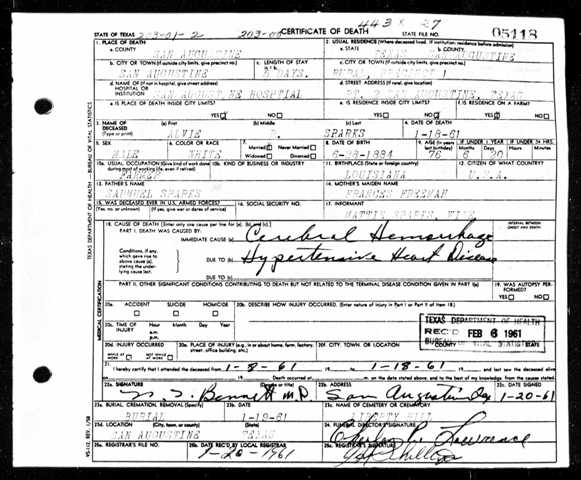 443 27
STATE OF TEXAS 203-01-2 203-00 CERTIFICATE OF DEATH STATE FILE NO. 05118
1. PLACE OF DEATH
a. COUNTY SAN AUGUSTINE
2. USUAL RESIDENCE (Where deceased lived. If institution: residence before admission)
a. STATE TEXAS b. COUNTY SAN AUGUSTINE
b. CITY OR TOWN (If outside city limits, give precinct no.) SAN AUGUSTINE
c. LENGTH OF STAY DAYS.
c. CITY OR TOWN (If outside city limits, give precinct no.) RURAL 1
d. NAME OF (If not in hospital, give street address) HOSPITAL OR INSTITUTION SAN AUGUSTINE HOSPTIAL
d. STREET ADDRESS RT. 2 SAN AUGUSTINE, TEXAS
e. IS PLACE OF DEATH INSIDE CITY LIMITS? YES NO
e. IS RESIDENCE INSIDE CITY LIMITS? YES NO
f. IS RESIDENCE ON A FARM? YES NO
3. NAME OF DECEASED (Type or print) (a) First ALVIE (b) Middle (c) Last SPARKS
4. DATE OF DEATH 1-18-61
5. SEX MALE
6. COLOR OR RACE WHITE
7. Married Never Married Widowed Divorced
8. DATE OF BIRTH 1884
9. AGE (In years last birthday) 76
IF UNDER 1 YEAR Months 6 Days 20
IF UNDER 24 HRS. Hours Min.
10a. USUAL OCCUPATION (Give kind of work done during most of working life, even if retired) FARMER
10b. KIND OF BUSINESS OR INDUSTRY
11. BIRTHPLACE (State or foreign country) LOUISIANA
12. CITIZEN OF WHAT COUNTRY? U.S.A.
13. FATHER'S NAME SAUMUEL SPARKS
14. MOTHER'S MAIDEN NAME FRANCES FREEMAN
15. WAS DECEASED EVER IN U.S. ARMED FORCES? (Yes, no, or unknown) (If yes, give war or dates of service)
16. SOCIAL SECURITY NO.
17. INFORMANT MATTIE SPARKS, WIFE
18. CAUSE OF DEATH (Enter only one cause per line for (a), (b), and (c).)
INTERVAL BETWEEN ONSET AND DEATH
PART I. DEATH WAS CAUSED BY:
IMMEDIATE CAUSE (a) Cerebral Hemorrhage
Conditions, if any, which gave rise to above cause (a), stating the underlying cause last.
DUE TO (b) Hypertensive Heart Disease
DUE TO (c)
PART II. OTHER SIGNIFICANT CONDITIONS CONTRIBUTING TO DEATH BUT NOT RELATED TO THE TERMINAL DISEASE CONDITION GIVEN IN PART I(a)
19. WAS AUTOPSY PERFORMED? YES NO
20a. ACCIDENT SUICIDE HOMICIDE
20b. DESCRIBE HOW INJURY OCCURRED. (Enter nature of injury in Part I or Part II of item 18.)
20c. TIME OF INJURY Hour a.m. p.m. Month Day Year
TEXAS DEPARTMENT OF HEALTH
REC'D FEB 6 1961
BUREAU OF VITAL STATISTICS
20d. INJURY OCCURRED WHILE AT WORK NOT WHILE AT WORK
20e. PLACE OF INJURY (e.g., in or about home, farm, factory, street, office building, etc.)
20f. CITY, TOWN, OR LOCATION COUNTY STATE
21. I hereby certify that I attended the deceased from 1-8-61 to 1-18-61 and last saw the deceased alive
Death occurred at m. on the date stated above; and to the best of my knowledge, from the causes stated.
22a. SIGNATURE Bennett M.D. (Degree or title)
22b. ADDRESS San Augustine
22c. DATE SIGNED 1-20-61
23a. BURIAL, CREMATION, REMOVAL (Specify) BURIAL
23b. DATE 1-19-61
23c. NAME OF CEMETERY OR CREMATORY LIBERTY HILL
23d. LOCATION (City, town, or county) (State) SAN AUGUSTINE TEXAS
24. FUNERAL DIRECTOR'S SIGNATURE Lawrence
25a. REGISTRAR'S FILE NO.
25b. DATE REC'D BY LOCAL REGISTRAR 1-20-1961
25c. REGISTRAR'S SIGNATURE Phillips
TEXAS DEPARTMENT OF HEALTH—BUREAU OF VITAL STATISTICS
MEDICAL CERTIFICATION
VS-112, REV. 1/58